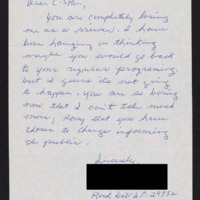 Dear C-Span,
You are completely boring
me as a viewer. I have
been hanging in thinking
maybe you would go back
to your regular programing,
but I guess its not going
to happen. You are so boring
now that I can't take much
more; Sorry that you have
chosen to change informing
the public.
Sincerely,
Rock Hill S.C. 29732